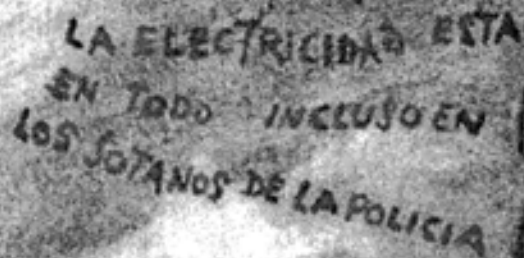 LA ELECTRICIDAD ESTA
EN TODO INCLUSO EN
LOS SOTANOS DE LA POLICIA